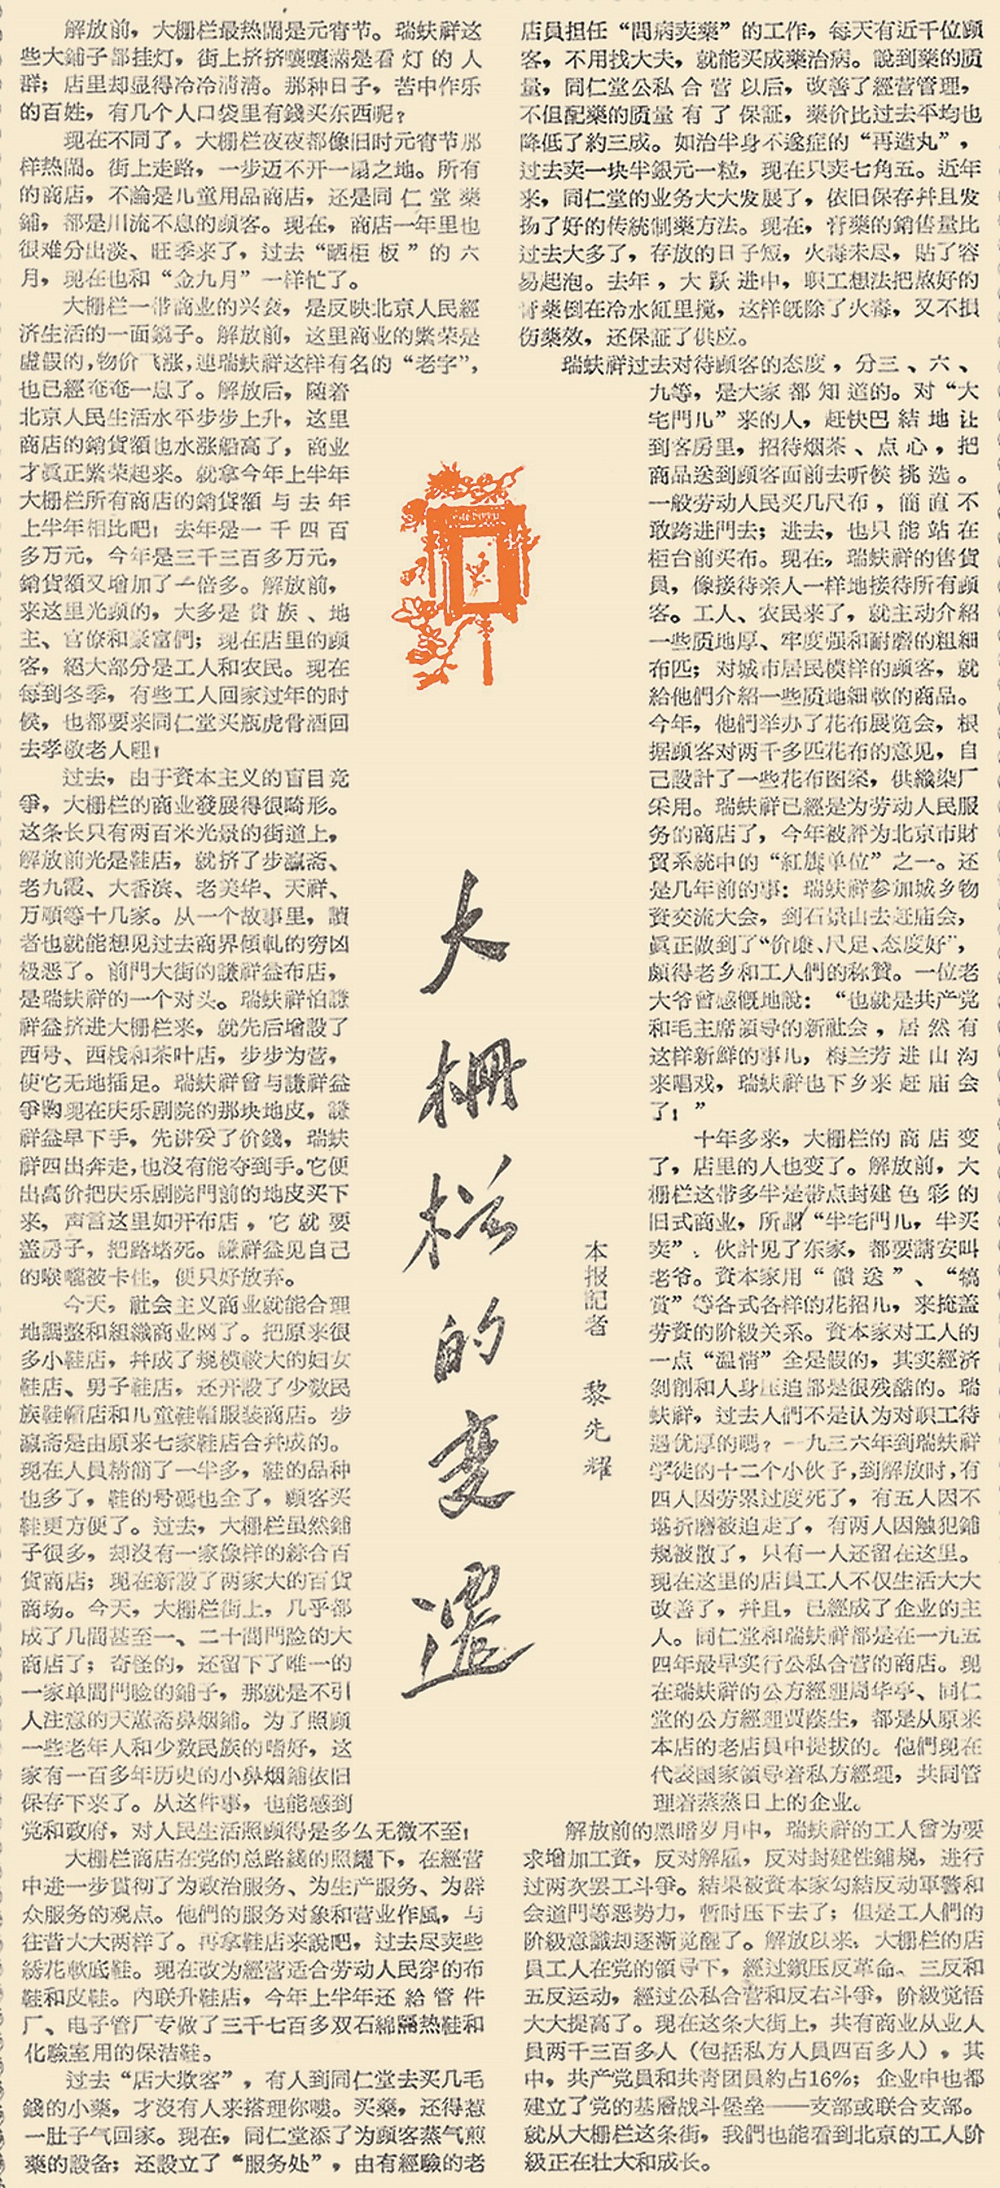 解放前，大栅栏最热鬧是元宵节。瑞蚨祥这
些大鋪子都挂灯，街上挤挤嚷嚷满是看灯的人
群；店里却显得冷冷清清。那种日子，苦中作乐
的百姓，有几个人口袋里有錢买东西呢？
现在不同了，大栅栏夜夜都像旧时元宵节那
样热鬧。街上走路，一步迈不开一扇之地。所有
的商店，不論是儿童用品商店，还是同仁堂藥
鋪，都是川流不息的顧客。现在，商店一年里也
很难分出淡、旺季来了，过去“晒柜板”的六
月，现在也和“金九月”一样忙了。
大栅栏一带商业的兴衰，是反映北京人民經
济生活的一面鏡子。解放前，这里商业的繁荣是
虚假的，物价飞涨，連瑞蚨祥这样有名的“老字”，
也已經奄奄一息了。解放后，随着
北京人民生活水平步步上升，这里
商店的銷貨額也水涨船高了，商业
才眞正繁荣起来。就拿今年上半年
大栅栏所有商店的銷貨額与去年
上半年相比吧！去年是一千四百
多万元，今年是三千三百多万元，
銷貨額又增加了一倍多。解放前，
来这里光顧的，大多是貴族、地
主、官僚和豪富們；现在店里的顧
客，絕大部分是工人和农民。现在
每到冬季，有些工人回家过年的时
候，也都要来同仁堂买瓶虎骨酒回
去孝敬老人哩！
过去，由于資本主义的盲目竞
爭，大栅栏的商业發展得很畸形。
这条长只有两百米光景的街道上，
解放前光是鞋店，就挤了步瀛斋、
老九霞、大香滨、老美华、天祥、
万順等十几家。从一个故事里，讀
者也就能想见过去商界傾軋的穷凶
极恶了。前門大街的謙祥益布店，
是瑞蚨祥的一个对头。瑞蚨祥怕謙
祥益挤进大栅栏来，就先后增設了
西号、西栈和茶叶店，步步为营，
使它无地插足。瑞蚨祥曾与謙祥益
爭购现在庆乐剧院的那块地皮，謙
祥益早下手，先讲妥了价錢，瑞蚨
祥四出奔走，也沒有能夺到手。它便
出高价把庆乐剧院門前的地皮买下
来，声言这里如开布店，它就要
盖房子，把路堵死。謙祥益见自己
的喉嚨被卡住，便只好放弃。
今天，社会主义商业就能合理
地調整和組織商业网了。把原来很
多小鞋店，幷成了规模較大的妇女
鞋店、男子鞋店，还开設了少数民
族鞋帽店和儿童鞋帽服装商店。步
瀛斋是由原来七家鞋店合幷成的。
现在人員精简了一半多，鞋的品种
也多了，鞋的号碼也全了，顧客买
鞋更方便了。过去，大栅栏虽然鋪
子很多，却沒有一家像样的綜合百
貨商店；现在新設了两家大的百貨
商场。今天，大栅栏街上，几乎都
成了几間甚至一、二十間門脸的大
商店了；奇怪的，还留下了唯一的
一家单間門脸的鋪子，那就是不引
人注意的天蕙斋鼻烟鋪。为了照顧
一些老年人和少数民族的嗜好，这
家有一百多年历史的小鼻烟鋪依旧
保存下来了。从这件事，也能感到
党和政府，对人民生活照顧得是多么无微不至！
大栅栏商店在党的总路綫的照耀下，在經营
中进一步貫彻了为政治服务、为生产服务、为群
众服务的观点。他們的服务对象和营业作風，与
往昔大大两样了。再拿鞋店来說吧，过去尽卖些
綉花軟底鞋。现在改为經营适合劳动人民穿的布
鞋和皮鞋。内联升鞋店，今年上半年还給管件
厂、电子管厂专做了三千七百多双石綿隔热鞋和
化驗室用的保洁鞋。
过去“店大欺客”，有人到同仁堂去买几毛
錢的小藥，才沒有人来搭理你哦。买藥，还得惹
一肚子气回家。现在，同仁堂添了为顧客蒸气煎
藥的設备；还設立了“服务处”，由有經驗的老
店員担任“問病卖藥”的工作，每天有近千位顧
客，不用找大夫，就能买成藥治病。說到藥的质
量，同仁堂公私合营以后，改善了經营管理，
不但配藥的质量有了保証，藥价比过去平均也
降低了約三成。如治半身不遂症的“再造丸”，
过去卖一块半銀元一粒，现在只卖七角五。近年
来，同仁堂的业务大大发展了，依旧保存幷且发
扬了好的传統制藥方法。现在，膏藥的銷售量比
过去大多了，存放的日子短，火毒未尽，貼了容
易起泡。去年，大跃进中，职工想法把熬好的
膏藥倒在冷水缸里搅，这样既除了火毒，又不损
伤藥效，还保証了供应。
瑞蚨祥过去对待顧客的态度，分三、六、
九等，是大家都知道的。对“大
宅門儿”来的人，赶快巴結地让
到客房里，招待烟茶、点心，把
商品送到顧客面前去听候挑选。
一般劳动人民买几尺布，简直不
敢跨进門去；进去，也只能站在
柜台前买布。现在，瑞蚨祥的售貨
員，像接待亲人一样地接待所有顧
客。工人、农民来了，就主动介紹
一些质地厚、牢度强和耐磨的粗細
布匹；对城市居民模样的顧客，就
給他們介紹一些质地細軟的商品。
今年，他們举办了花布展览会，根
据顧客对两千多匹花布的意见，自
己設計了一些花布图案，供織染厂
采用。瑞蚨祥已經是为劳动人民服
务的商店了，今年被評为北京市財
貿系統中的“紅旗单位”之一。还
是几年前的事：瑞蚨祥参加城乡物
資交流大会，到石景山去赶庙会，
眞正做到了“价廉、尺足、态度好”，
頗得老乡和工人們的称贊。一位老
大爷曾感慨地說：“也就是共产党
和毛主席領导的新社会，居然有
这样新鮮的事儿，梅兰芳进山沟
来唱戏，瑞蚨祥也下乡来赶庙会
了！”
十年多来，大栅栏的商店变
了，店里的人也变了。解放前，大
栅栏这带多半是带点封建色彩的
旧式商业，所謂“半宅門儿，半买
卖”。伙計见了东家，都要請安叫
老爷。資本家用“饋送”、“犒
赏”等各式各样的花招儿，来掩盖
劳資的阶級关系。資本家对工人的
一点“温情”全是假的，其实經济
剝削和人身压迫都是很残酷的。瑞
蚨祥，过去人們不是认为对职工待
遇优厚的嗎？一九三六年到瑞蚨祥
学徒的十二个小伙子，到解放时，有
四人因劳累过度死了，有五人因不
堪折磨被迫走了，有两人因触犯鋪
规被散了，只有一人还留在这里。
现在这里的店員工人不仅生活大大
改善了，幷且，已經成了企业的主
人。同仁堂和瑞蚨祥都是在一九五
四年最早实行公私合营的商店。现
在瑞蚨祥的公方經理周华亭、同仁
堂的公方經理贾蔭生，都是从原来
本店的老店員中提拔的。他們现在
代表国家領导着私方經理，共同管
理着蒸蒸日上的企业。
解放前的黑暗岁月中，瑞蚨祥的工人曾为要
求增加工資，反对解雇，反对封建性鋪规，进行
过两次罢工斗爭。結果被資本家勾結反动軍警和
会道門等恶势力，暫时压下去了；但是工人們的
阶級意識却逐漸觉醒了。解放以来，大栅栏的店
員工人在党的領导下，經过鎭压反革命、三反和
五反运动，經过公私合营和反右斗爭，阶級觉悟
大大提高了。现在这条大街上，共有商业从业人
員两千三百多人（包括私方人員四百多人），其
中，共产党員和共青团員約占16%；企业中也都
建立了党的基層战斗堡垒——支部或联合支部。
就从大栅栏这条街，我們也能看到北京的工人阶
級正在壮大和成长。
大栅栏的变迁
本报記者 黎先耀